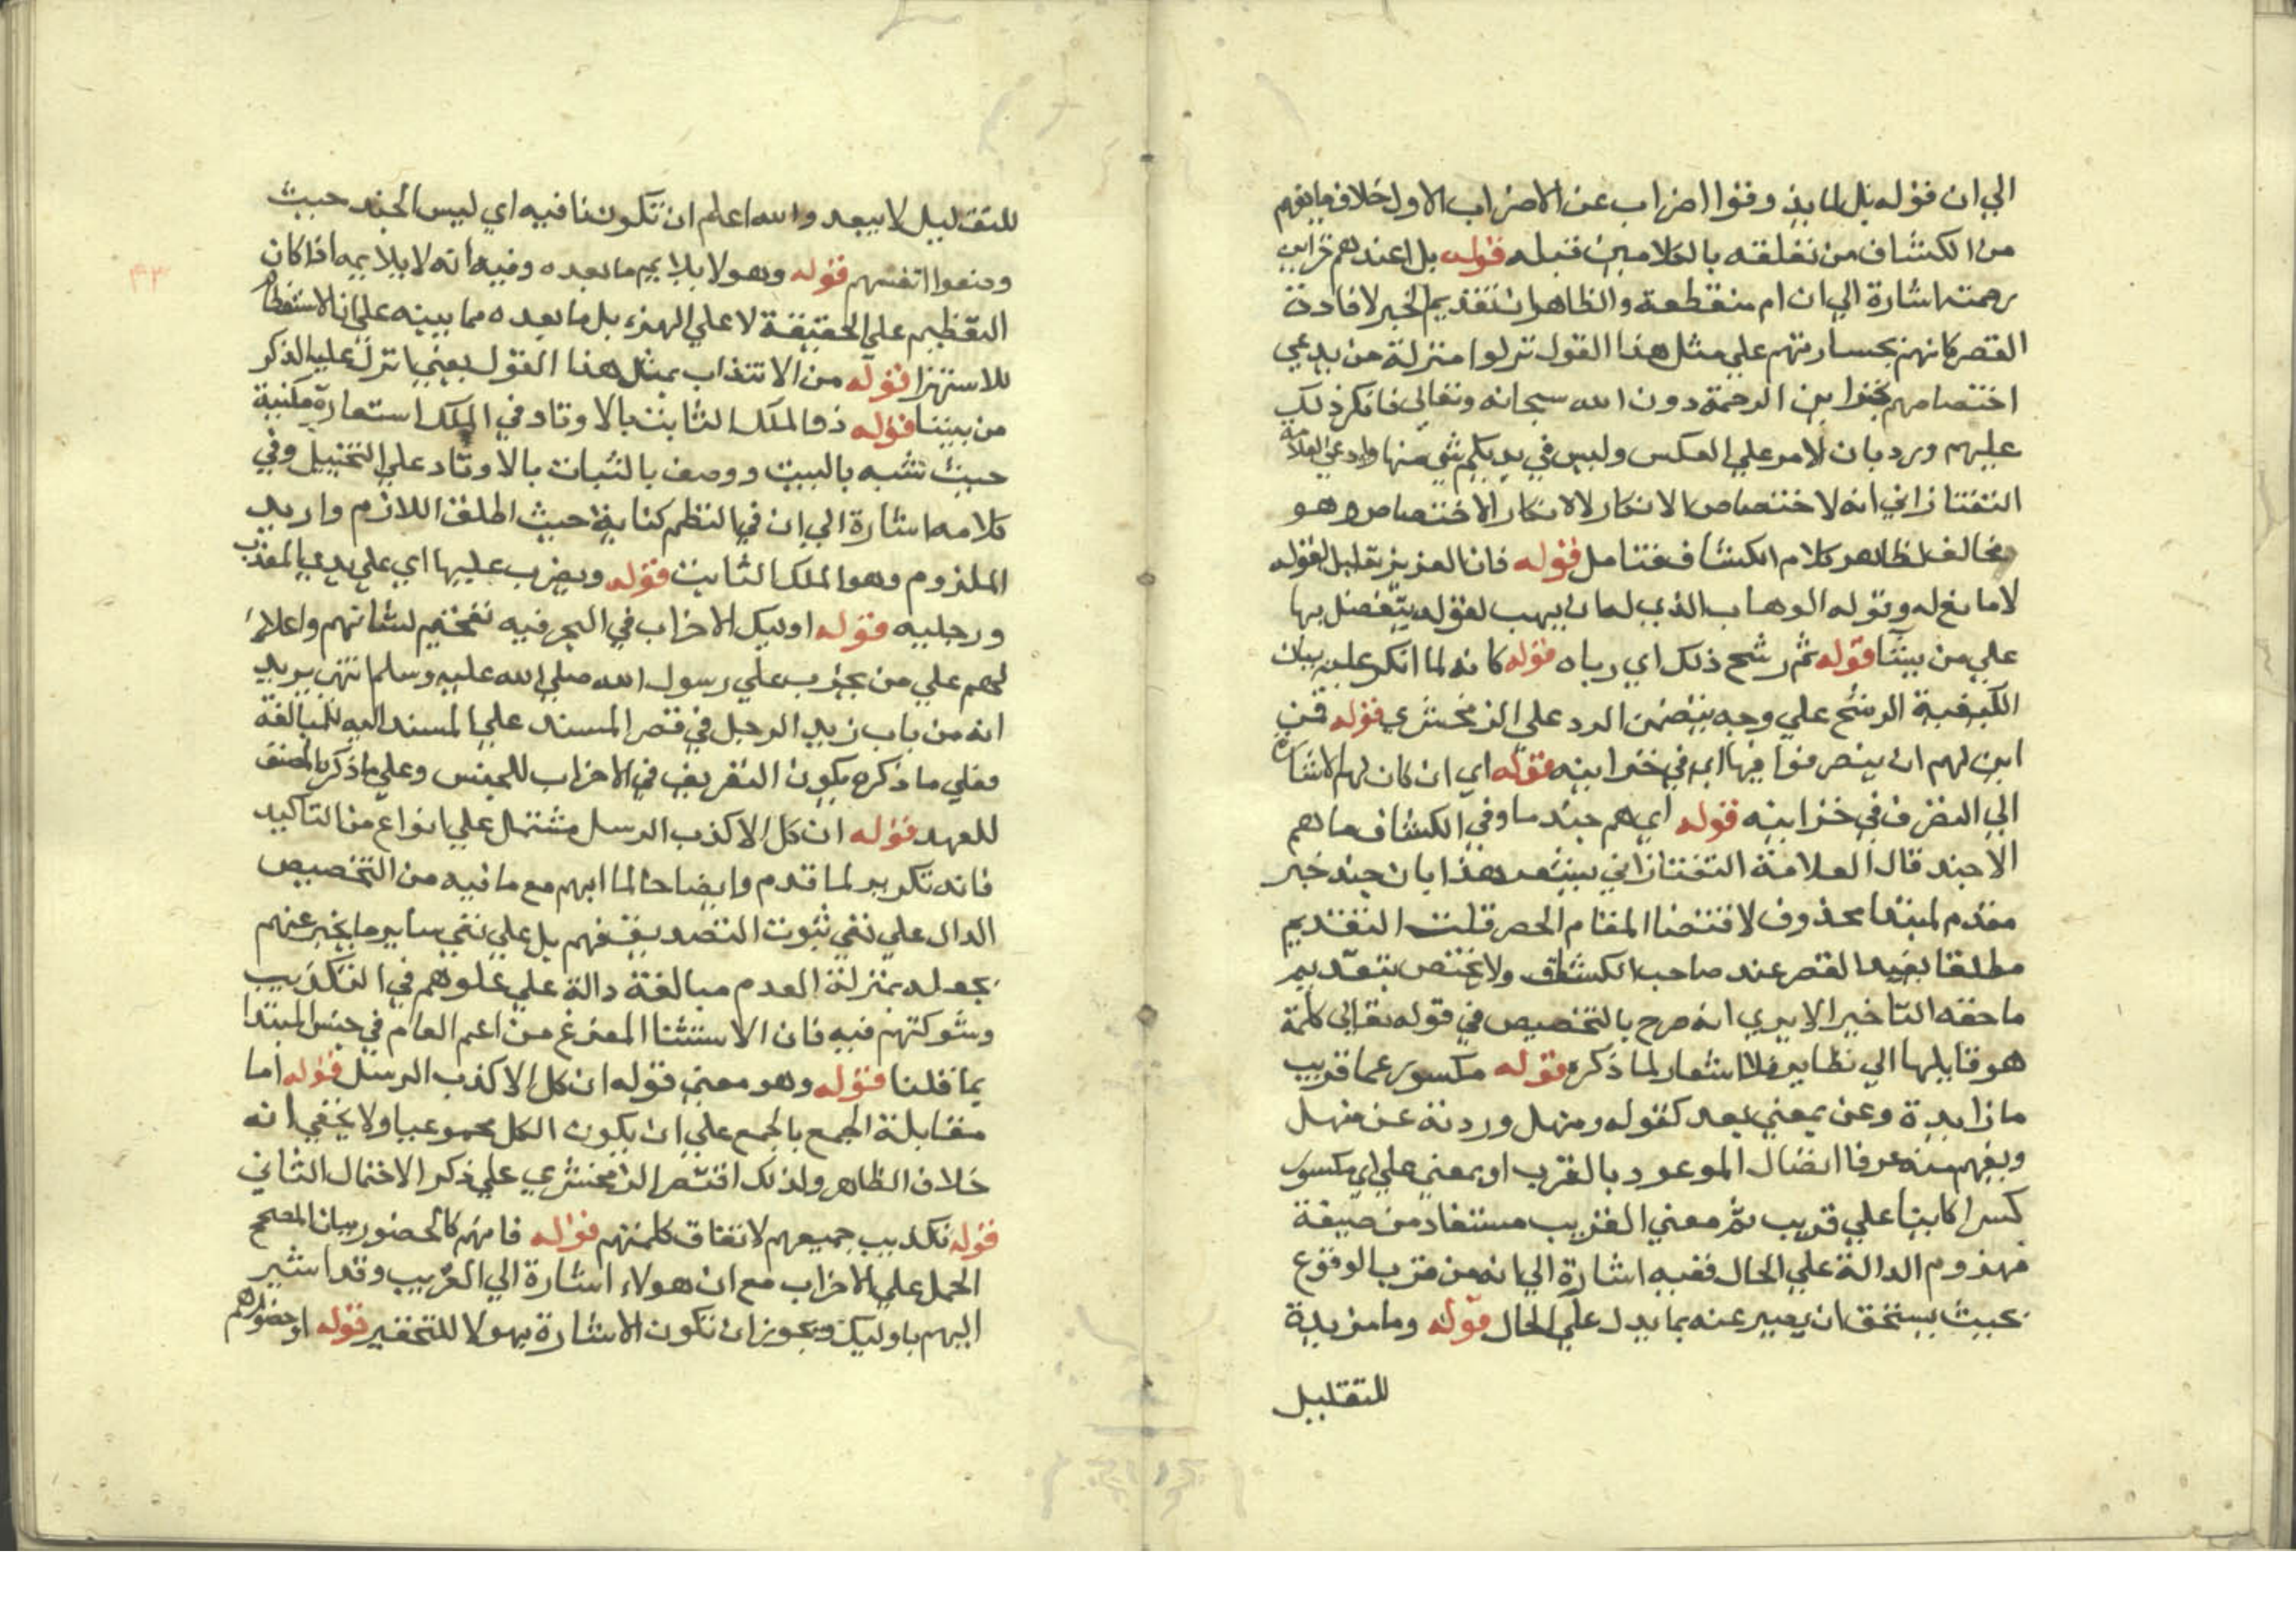 الي ان قوله بل لما يذوقوا اضراب عن الاضراب الاول خلاف ما يفهم
من الكشاف من تعلقه بالكلامين قبله قوله بل اعندهم خزاين
رحمته اشارة الي ان ام منقطعة والظاهر ان تقديم الخبر لافادة
القصر كانهم بجسارتهم علي مثل هذا القول نزلوا منزلة من يدعي
اختصاصهم بخزاين الرحمة دون الله سبحانه وتعالي فانكر ذلك
عليهم ورد بان الامر علي العكس وليس في يديكم شي منها وادعي العلامة
التفتازاني انه لاختصاص الانكار لا لانكار الاختصاص وهو
مخالف لظاهر كلام الكشاف فتامل قوله فان العزيز تعليل لقوله
لا مانع له وقوله الوهاب الذي له ان يهب لقوله يتفضل بها
علي من يشا قوله ثم رشح ذلك اي رباه قوله كانه لما انكر عليه بيان
الكيفية الرشح علي وجه يتضمن الرد علي الزمخشري قوله فمن
اين لهم ان يتصرفوا فيها اي في خزاينه قوله اي ان كان لهم الاشارة
الي التصرف في خزاينه قوله اي هم جند ما وفي الكشاف ما هم
الا جند قال العلامة التفتازاني يشعر هذا بان جند خبر
مقدم لمبتدا محذوف لاقتضا المقام الحصر قلت التقديم
مطلقا يفيد القصر عند صاحب الكشاف ولا يختص بتقديم
ما حقه التاخير الا يري انه صرح بالتخصيص في قوله تعالي كلمة
هو قايلها الي نظاير فلا اشعار لما ذكره قوله مكسور عما قريب
ما زايدة وعن بمعني بعد كقوله ومنهل وردته عن منهل
ويفهم منه عرفا اتصال الموعود بالقرب او بمعني علي اي مكسور
كسرا كاينا علي قريب ثم معني القريب مستفاد من صيغة
مهزوم الدالة علي الحال ففيه اشارة الي انه من قرب الوقوع
بحيث يستحق ان يعبر عنه بما يدل علي الحال قوله وما مزيدة
للتقليل
للتقليل لا يبعد والله اعلم ان تكون نافية اي ليس الجند حيث
وضعوا انفسهم قوله وهو لا يلايم ما بعده وفيه انه لا يلايمه اذا كان
التعظيم علي الحقيقة لا علي الهزء بل ما بعده مما يبينه علي ان الاستعظام
للاستهزا قوله من الانتداب بمثل هذا القول يعني اانزل عليه الذكر
من بيننا قوله ذو الملك الثابت بالاوتاد في الملك استعارة مكنية
حيث شبه بالبيت ووصف بالثبات بالاوتاد علي التخييل وفي
كلامه اشارة الي ان في النظم كناية حيث اطلق اللازم واريد
الملزوم وهو الملك الثابت قوله ويضرب عليها اي علي يدي المعذب
ورجليه قوله اوليك الاحزاب في البحر فيه تفخيم لشانهم واعلا
لهم علي من يحزب علي رسول الله صلي الله عليه وسلم انتهي يريد
انه من باب زيد الرجل في قصر المسند علي المسند اليه للمبالغة
فعلي ما ذكره يكون التعريف في الاحزاب للجنس وعلي ما ذكره المصنف
للعهد قوله ان كل الا كذب الرسل مشتمل علي انواع من التاكيد
فانه تكرير لما قدم وايضاحا لما ابهم مع ما فيه من التخصيص
الدال علي نفي ثبوت التصديق فيهم بل علي نفي ساير ما يخبر عنهم
بجعله بمنزلة العدم مبالغة دالة علي غلوهم في التكذيب
وشوكتهم فيه فان الاستثنا المفرغ من اعم العام في جنس المبتدا
بما قلنا قوله وهو معني قوله ان كل الا كذب الرسل قوله اما
مقابلة الجمع بالجمع علي ان يكون الكل مجموعيا ولا يخفي انه
خلاف الظاهر ولذلك اقتصر الزمخشري علي ذكر الاحتمال الثاني
قوله تكذيب جميعهم لاتفاق كلمتهم قوله فانهم كالحضور بيان المصحح
الحمل علي الاحزاب مع ان هولاء اشارة الي القريب وقد اشير
اليهم باوليك ويجوز ان تكون الاشارة بهولا للتحقير قوله او حضورهم
٤٣